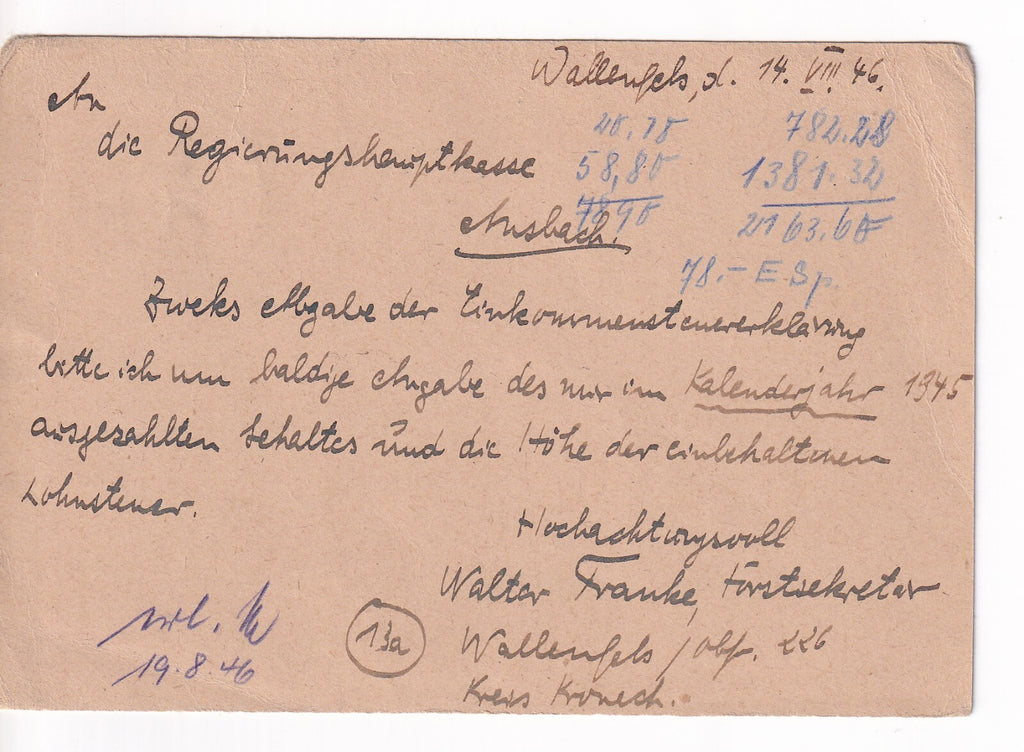 Wallenfels, d. 14. VIII. 46.
An
die Regierungshauptkasse
Ansbach.
782.28
58,80
1381.32
78,90
2163.60
78.- E.Sp.
Zweks Abgabe der Einkommensteuererklärung
bitte ich um baldige Angabe des mir im Kalenderjahr 1945
ausgezahlten Gehaltes und die Höhe der einbehaltenen
Lohnsteuer.
Hochachtungsvoll
Walter Franke, Forstsekretär
Wallenfels / Obfr. 226
Kreis Kronach.
13a
erl.
19.8.46